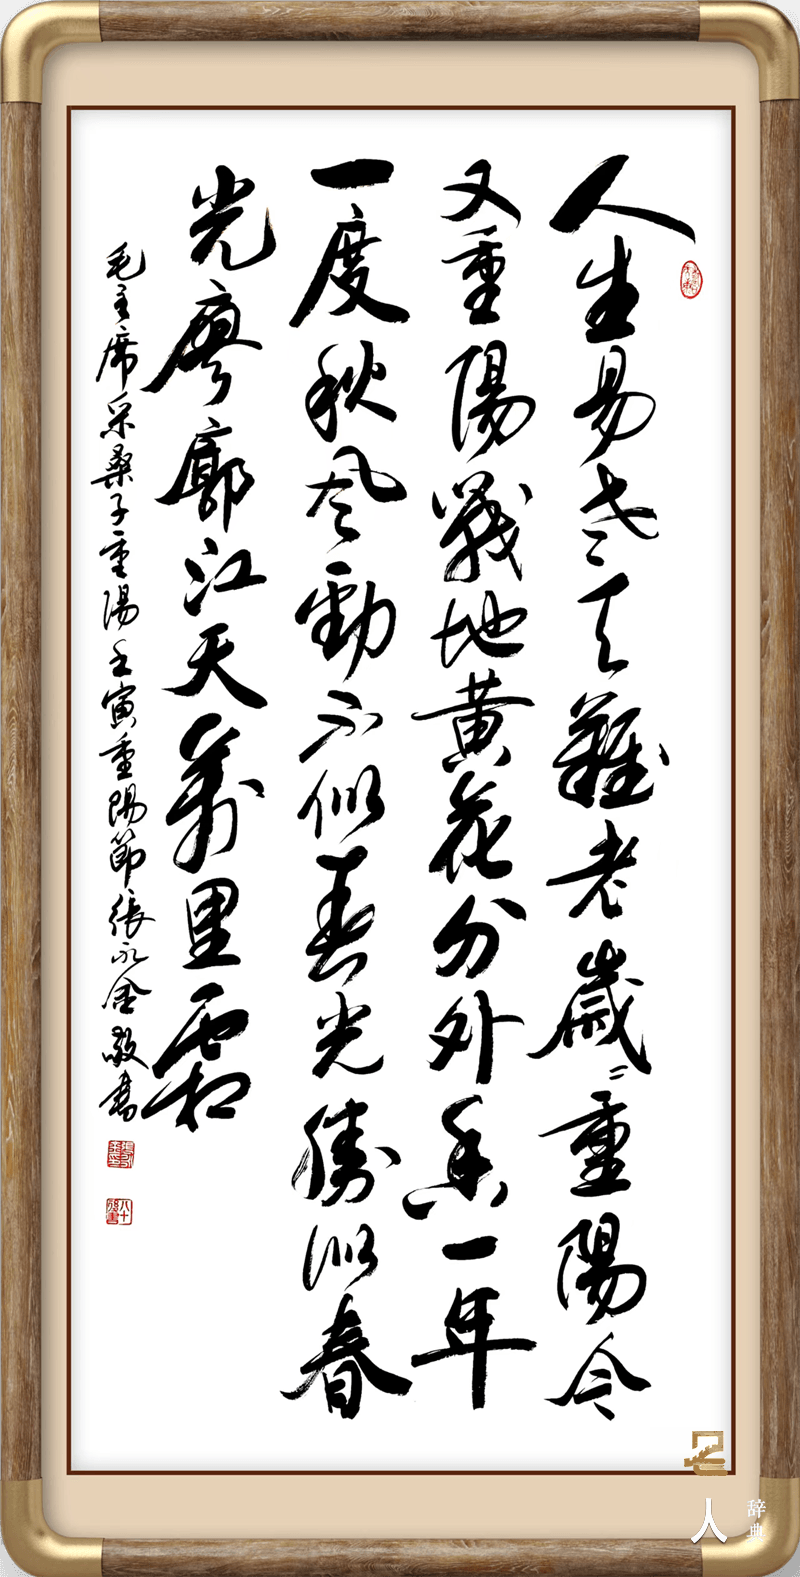 人生易老天難老歲〻重陽今
又重陽戰地黃花分外香一年
一度秋风勁不似春光勝似春
光廖廓江天萬里霜
毛主席采桑子重陽壬寅重陽節張永金敬書
人
辞典